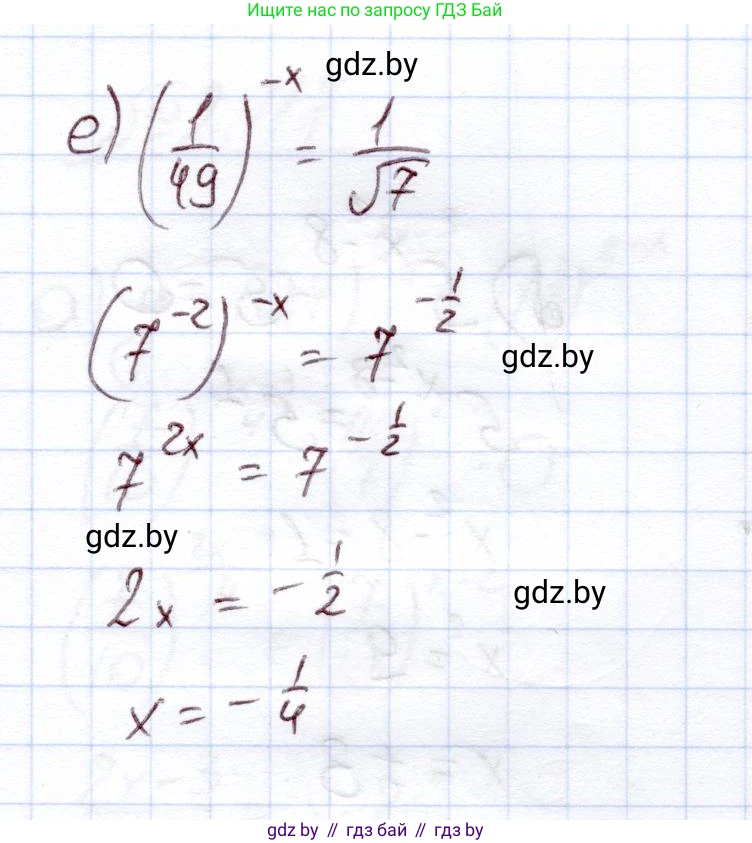 Ищите нас по запросу ГДЗ Бай
gdz.by
е) (1/49)^(-x) = 1/√7
(7^(-2))^(-x) = 7^(-1/2)
gdz.by
7^(2x) = 7^(-1/2)
gdz.by
2x = -1/2
gdz.by
x = -1/4
gdz by // гдз бай // gdz by